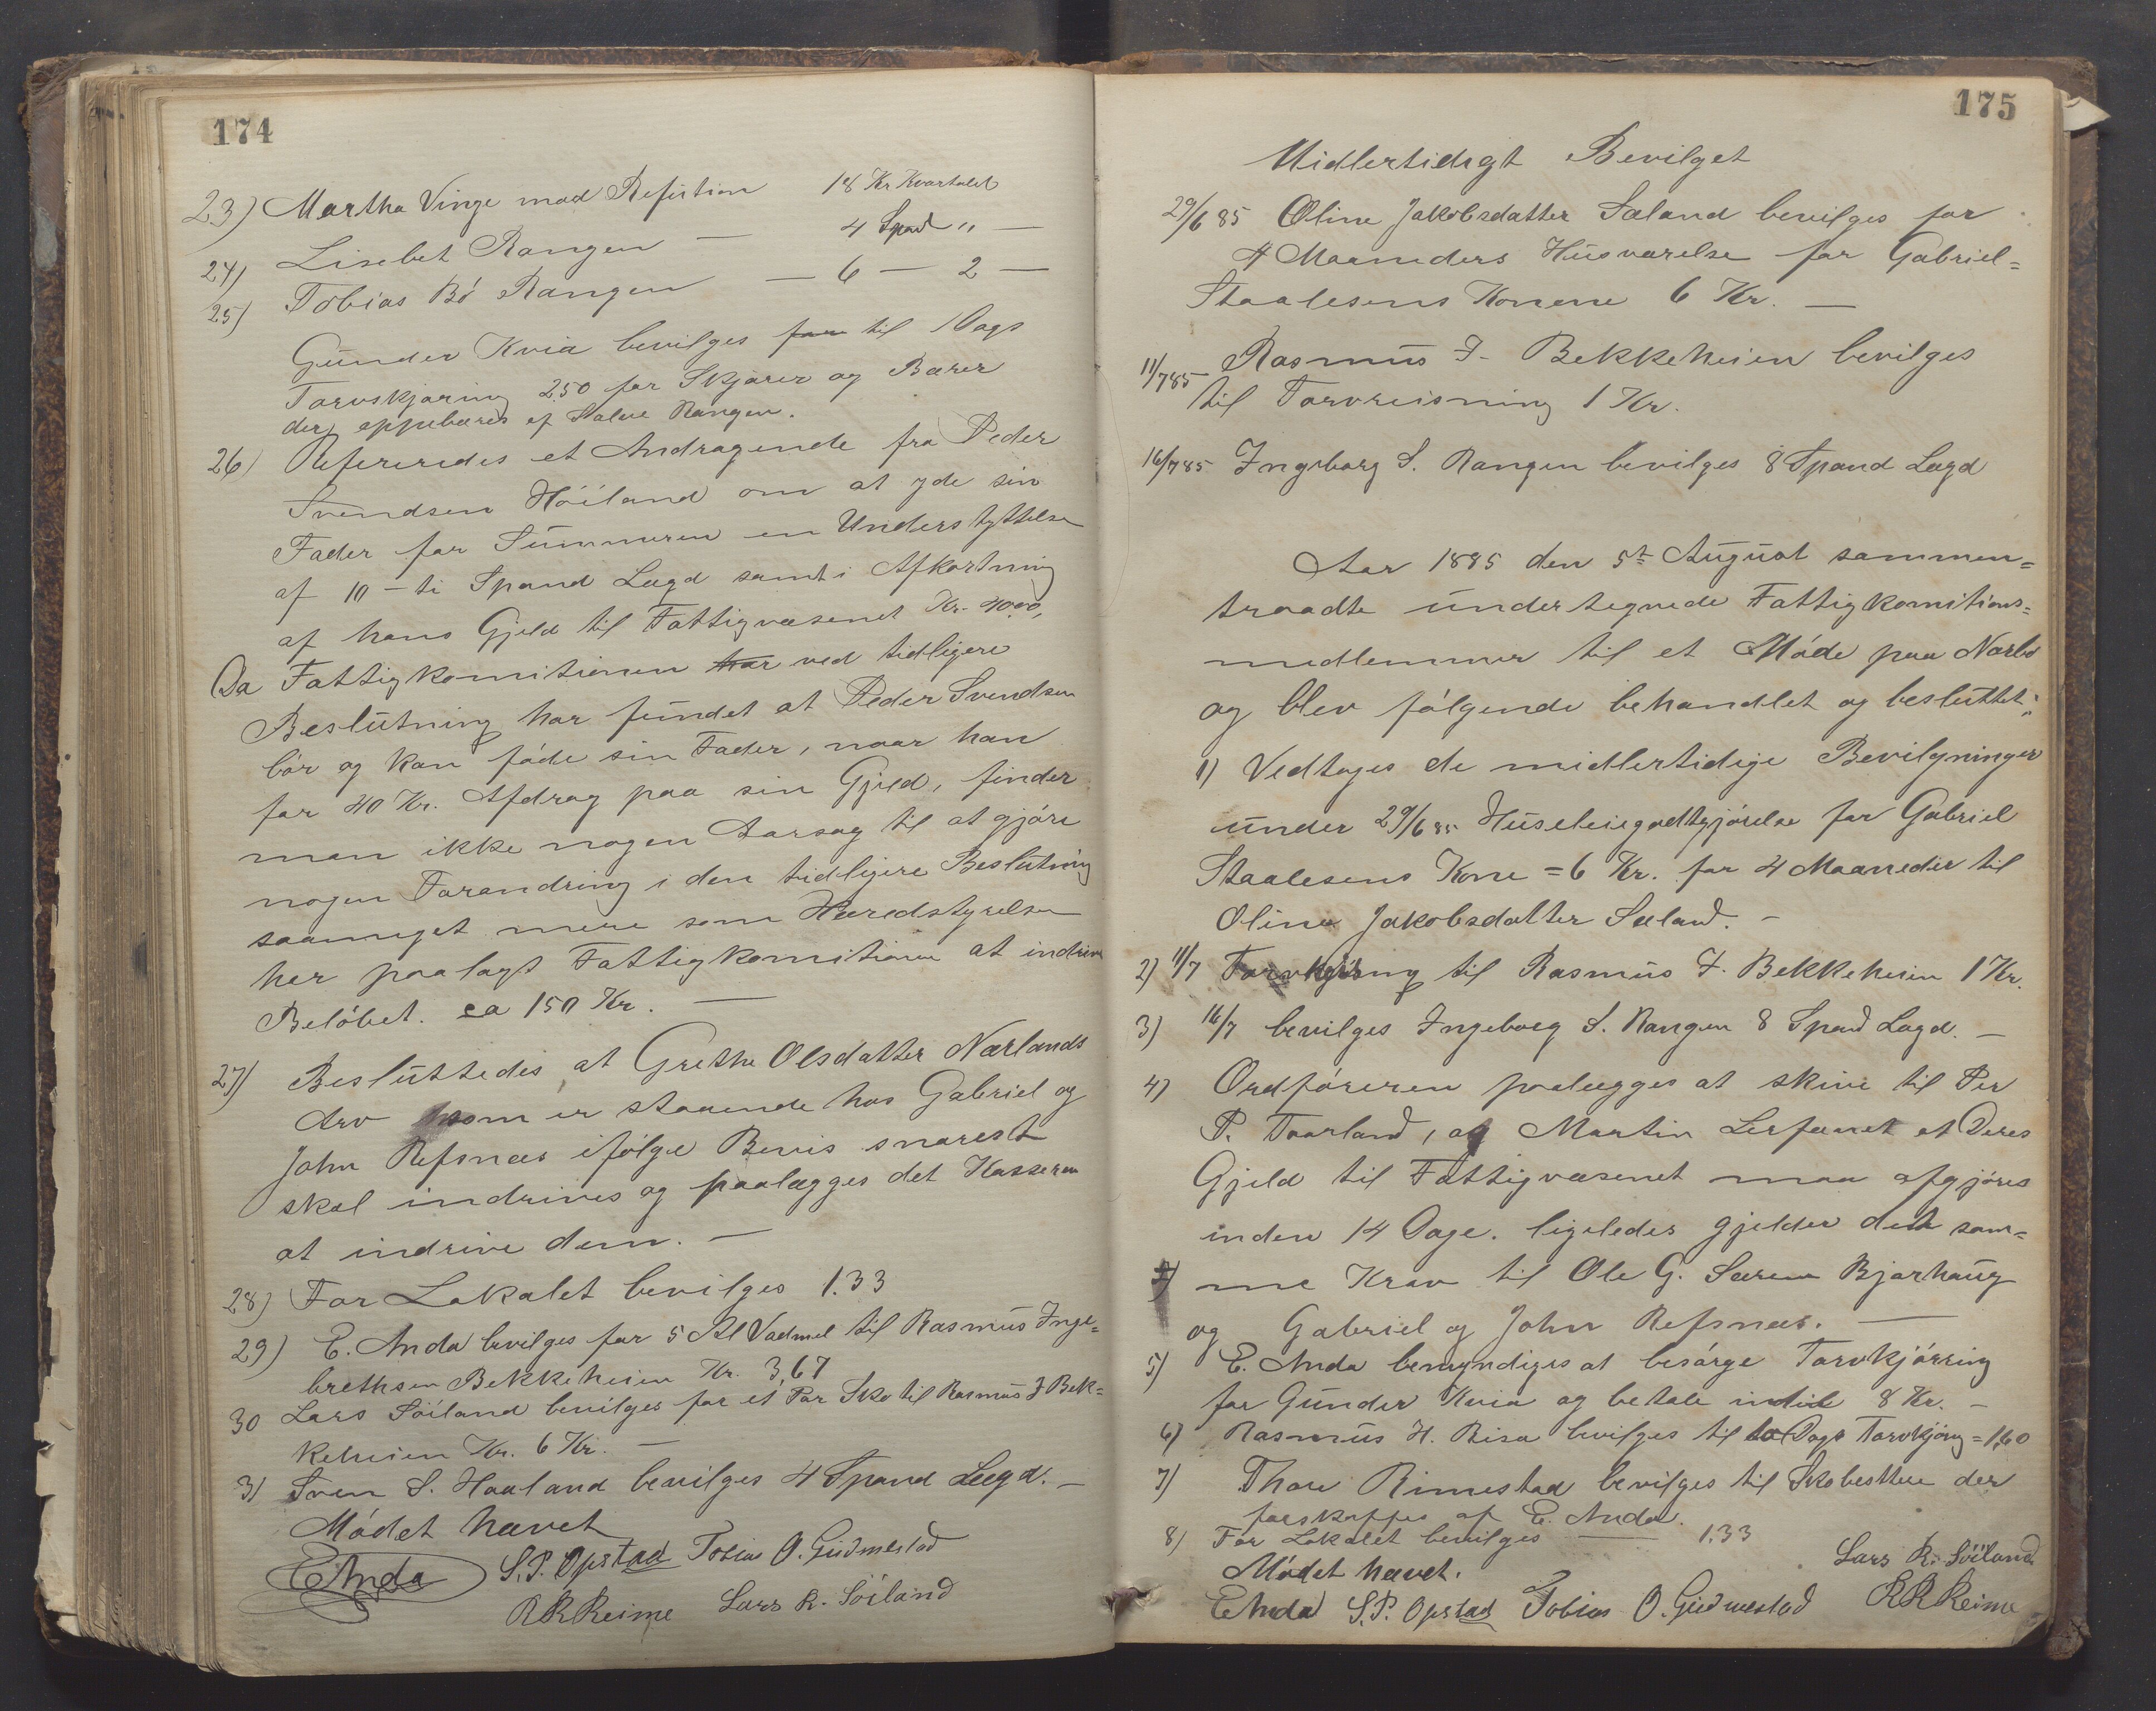 174
23) Martha Vinge mod Refusion 18 Kr Kvartalet
24) Lisebet Rangen — 4 Spand " —
25) Tobias Bö Rangen — 6 — 2 —
Gunder Kvia bevilges for til 1 Dags
Torvskjæring 2.50 for Skjærer og Bærer
der oppebæres af Rangen.
26) Refereredes et Andragende fra Peder
Svendsen Höiland om at yde sin
Fader for Summeren en Understyttelse
af 10 - ti Spand Lægd samt i Afkortning
af hans Gjeld til Fattigvæsenet Kr. 40.00,
Da Fattigkomitionen har ved tidligere
Beslutning har fundet at Peder Svendsen
bör og kan föde sin Fader, naar han
for 40 Kr. Afdrag paa sin Gjeld, finder
man ikke nogen Aarsag til at gjöre
nogen Forandring i den tidligere Beslutning
saameget mere som Heredstyrelsen
har paalagt Fattigkomitionen at indrive
Belöbet. ca 150 Kr. —
27) Besluttedes at Grethe Olsdatter Nærlands
Arv som er staaende hos Gabriel og
John Refsnæs ifölge Bevis snarest
skal indrives og paalægges det Kasseren
at indrive dem. —
28) For Lokalet bevilges 1.33
29) E. Anda bevilges for 5 Al Vadmel til Rasmus Inge=
brethsen Bekkeheien Kr. 3,67
30 Lars Söiland bevilges for et Par Sko til Rasmus I Bek=
keheien Kr. 6 Kr. —
31 Sven S. Haaland bevilges 4 Spand Lægd. —
Mödet hævet
E Anda S. P. Opstad Tobias O. Gudmestad
R R Reime Lars R. Söiland
175
Midlertidigt Bevilget
29/6 85 Oline Jakobsdatter Sæland bevilges for
4 Maaneders Husværelse for Gabriel=
Staalesens Konene 6 Kr. —
11/7 85 Rasmus I. Bekkeheien bevilges
til Torvreisning 1 Kr.
16/7 85 Ingeborg S. Rangen bevilges 8 Spand Lægd
Aar 1885 den 5te August sammen=
traadte undertegnede Fattigkomitions=
medlemmer til et Möde paa Nærbö
og blev fölgende behandlet og besluttet:
1) Vedtages de midlertidige Bevilgninger
under 29/6 85 Huseleiegodtgjörelse for Gabriel
Staalesens Kone = 6 Kr. for 4 Maaneder til
Oline Jakobsdatter Sæland. —
2) 11/7 til Rasmus I. Bekkeheien 1 Kr.
3) 16/7 bevilges Ingeborg S. Rangen 8 Spand Lægd. —
4) Ordföreren paalægges at skrive til Per
P. Taarland, og Martin Lerfanet at Deres
Gjeld til Fattigvæsenet maa afgjöres
inden 14 Dage. ligeledes gjelder det sam=
me Krav til Ole G. Bjorhaug
og Gabriel og John Refsnæs. —
5) E. Anda bemyndiges at besörge Torvkjörring
for Gunder Kvia og betale indtil 8 Kr. —
6) Rasmus H. Risa bevilges til to Dags Torvkjöring = 1,60
7) Thore Rimestad bevilges til Sko der
forskaffes af E. Anda.
8) For Lokalet bevilges — 1.33
Mödet hævet. Lars R. Söiland
E Anda S. P. Opstad Tobias O. Gudmestad R R Reime